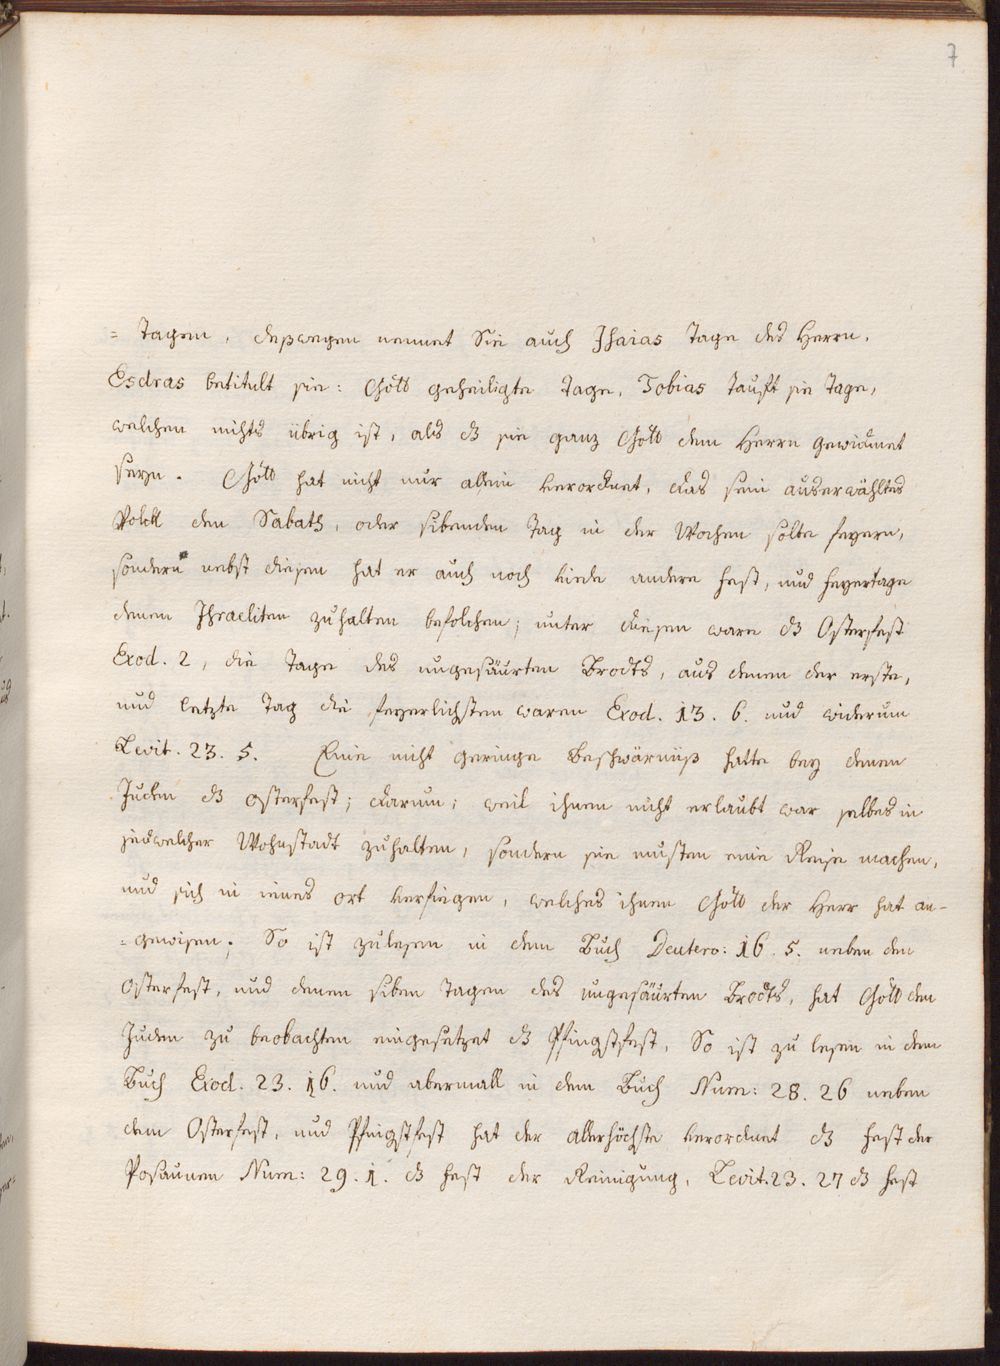 7
= tagen, deßwegen nennet Sie auch Jsaias Tage des Herrn,
Esdras betitult sie: Gott geheiligte Tage, Tobias tauft sie Tage,
welchen nichts übrig ist, als dz sie ganz Gott dem Herrn gewidmet
seyn. Gott hat nicht nur allein verordnet, das sein auserwähltes
Volck den Sabath, oder sibenden Tag in der Wochen solte feyern,
sondern nebst diesen hat er auch noch viele andere Fest, und Feyertage
denen Jsraeliten zuhalten befolchen; unter diesen ware dz Osterfest
Exod. 2, die Tage des ungesäurten Brodts, aus denen der erste,
und letzte Tag die feyerlichsten waren Exod. 13. 6. und widerum
Levit. 23. 5. Eine nicht geringe Beschwärnüß hatte bey denen
Juden dz Osterfest; darum; weil ihnen nicht erlaubt war selbes in
jedwelcher Wohnstadt zuhalten, sondern sie musten eine Reise machen,
und sich in jenes ort verfiegen, welches ihnen Gott der Herr hat an-
= gewisen. So ist zulesen in dem Buch Deutero: 16. 5. neben den
Osterfest, und denen siben Tagen des ungesäurten Brodts, hat Gott den
Juden zu beobachten eingesetzet dz Pfingstfest, So ist zu lesen in dem
Buch Exod. 23. 16. und abermall in dem Buch Num: 28. 26 neben
dem Osterfest, und Pfingstfest hat der Allerhöchste verordnet dz Fest der
Posaunen Num: 29. 1. dz Fest der Reinigung, Levit. 23. 27 dz Fest